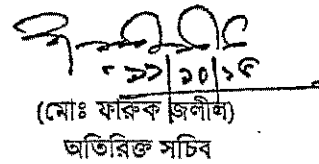 ২২|১০|১৫
(মোঃ ফারুক জলীল)
অতিরিক্ত সচিব